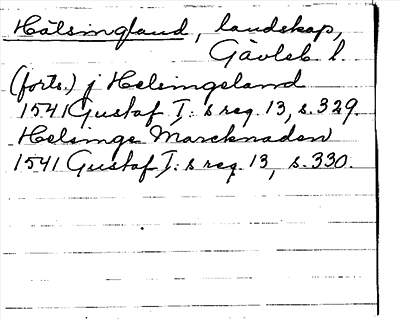 Hälsingland, landskap,
Gävleb l.
(forts.) j Helsingeland
1541 Gustaf I: s reg. 13, s. 329.
Helsinge Marcknaden
1541 Gustaf I: s reg. 13, s. 330.